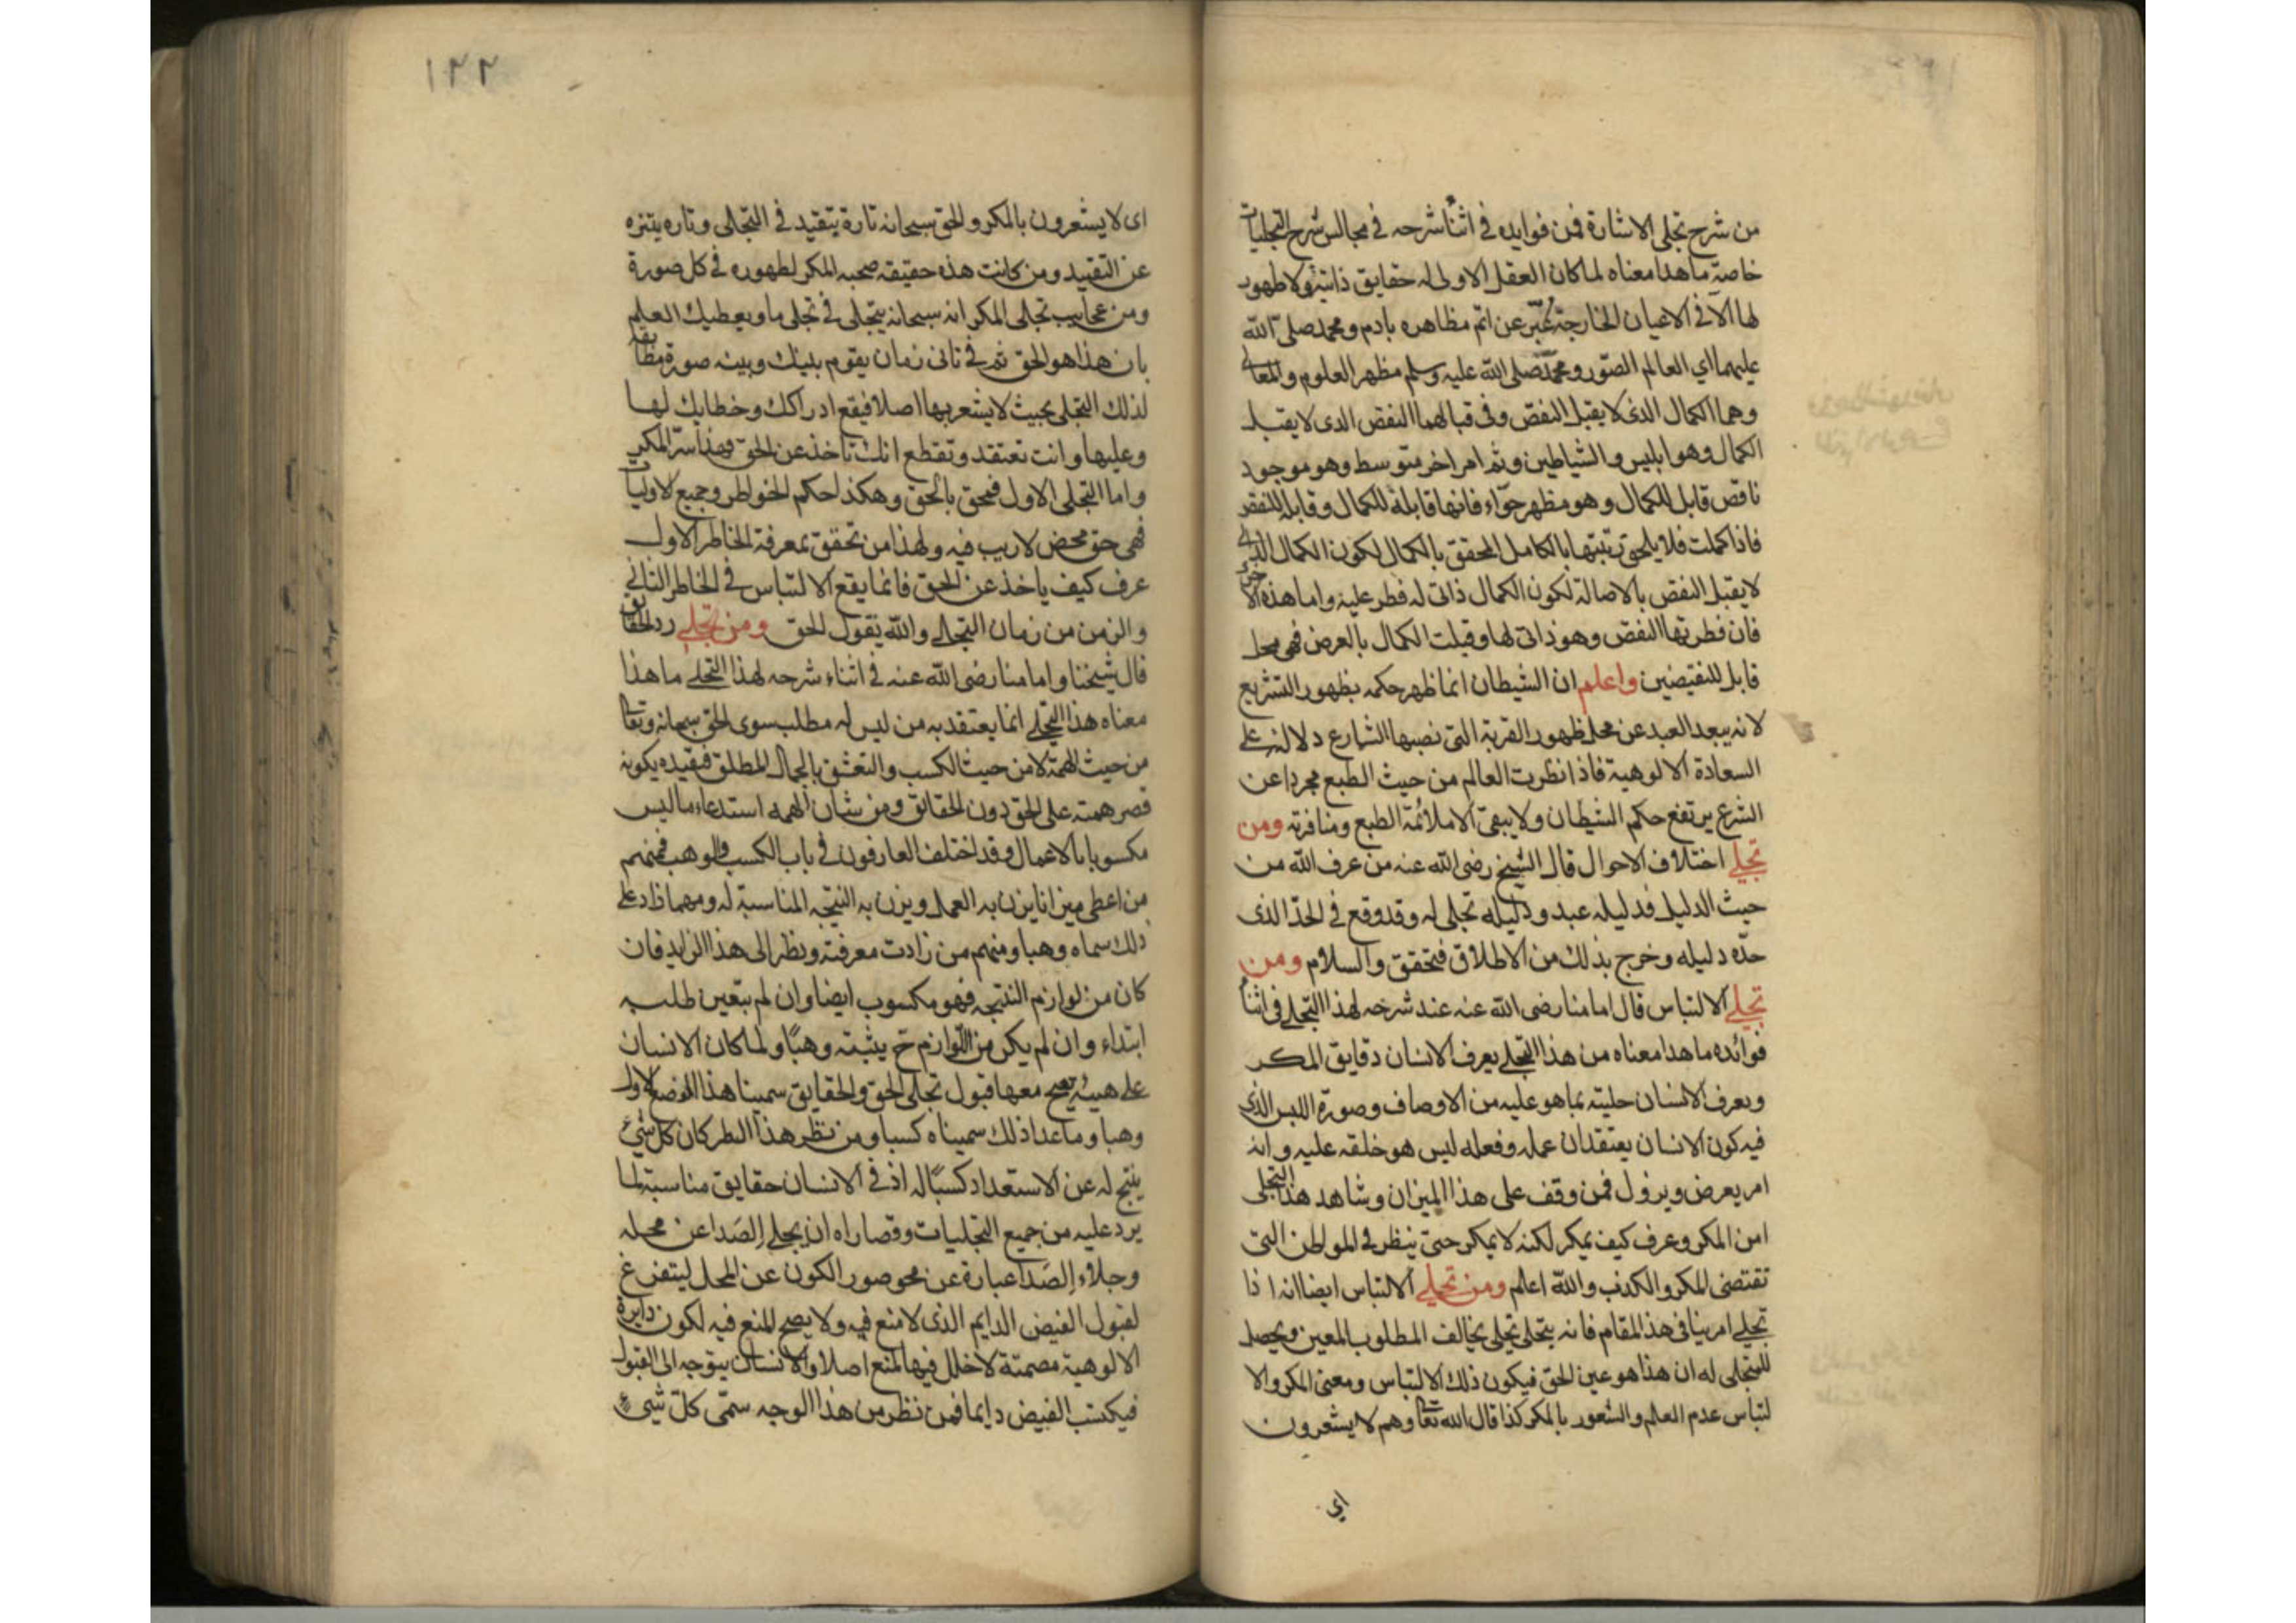 من شرح تجلى الاشارة فمن فوايده فى اثناء شرحه فى مجالس شرح التجليات
خاصة ما هذا معناه لما كان العقل الاول له حقايق ذاتية ولا ظهور
لها الا فى الاعيان الخارجة عُبّر عن اتم مظاهره بادم ومحمد صلى الله
عليهما اي العالم الصّور ومحمّد صلى الله عليه وسلم مظهر العلوم والمعانى
وهما الكمال الذى لا يقبل النقص وفى قبالهما النقص الذى لا يقبل
الكمال وهو ابليس والشياطين وثم امر اخر متوسط وهو موجود
ناقص قابل للكمال وهو مظهر حوّاء فانها قابلة للكمال وقابلة للنقص
فاذا كملت فلا يلحق رتبتها بالكامل المحقق بالكمال لكون الكمال الذى
لا يقبل النقص بالاصالة لكون الكمال ذاتى له فطر عليه واما هذه الاخرى
فان فطرتها النقص وهو ذاتى لها وقبلت الكمال بالعرض فهى محل
قابل للنقيضين واعلم ان الشيطان انما ظهر حكمه بظهور التشريع
لانه يبعد العبد عن محل ظهور القربة التى نصبها الشارع دلالة على
السعادة الالوهية فاذا نظرت العالم من حيث الطبع مجردا عن
الشرع يرتفع حكم الشيطان ولا يبقى الا ملائمة الطبع ومنافرته ومن
تجلي اختلاف الاحوال قال الشيخ رضى الله عنه من عرف الله من
حيث الدليل فدليله عبد ودليله تجلى له وقد وقع فى الحدّ الذى
حدّه دليله وخرج بذلك من الاطلاق فتحقق والسلام ومن
تجلي الالتباس قال امامنا رضى الله عنه عند شرحه لهذا التجلي فى اثناء
فوائده ما هذا معناه من هذا التجلي يعرف الانسان دقايق المكر
ويعرف الانسان حليته بما هو عليه من الاوصاف وصورة اللبس الذى
فيه كون الانسان يعتقد ان عمله وفعله ليس هو خلقه عليه وانه
امر يعرض ويزول فمن وقف على هذا الميزان وشاهد هذا التجلى
امن المكر وعرف كيف يمكر لكنه لا يمكر حتى ينظر فى المواطن التى
تقتضى المكر والكذب والله اعلم ومن تجلي الالتباس ايضا انه اذا
تجلي امر بنا فى هذا المقام فانه يتجلى تجلى يخالف المطلوب المعين ويحصل
للمتجلى له ان هذا هو عين الحق فيكون ذلك الالتباس ومعنى المكر والا
لتباس عدم العلم والشعور بالمكر كذا قال الله تعا وهم لا يشعرون
اي
١٢٢
اى لا يشعرون بالمكر والحق سبحانه تارة يتقيد فى التجلى وتاره يتنزه
عن التقييد ومن كانت هذه حقيقته صحبه المكر لظهوره فى كل صورة
ومن عجايب تجلى المكر انه سبحانه يتجلى فى تجلى ما ويعطيك العلم
بان هذا هو الحق ثم فى ثانى زمان يقوم بينك وبينه صورة مطابقة
لذلك التجلى بحيث لا يشعر بها اصلا فيقع ادراكك وخطابك لها
وعليها وانت تعتقد وتقطع انك تاخذ عن الحق وهذا سرّ المكر
واما التجلى الاول فمحق بالحق وهكذا حكم الخواطر وجميع الاوليات
فهى حق محض لا ريب فيه ولهذا من تحقق بمعرفة الخاطر الاول
عرف كيف ياخذ عن الحق فانما يقع الالتباس فى الخاطر الثانى
والزمن من زمان التجلى والله يقول الحق ومن تجلي رد الحقايق
قال شيخنا وامامنا رضى الله عنه فى اثناء شرحه لهذا التجلي ما هذا
معناه هذا التجلي انما يعتقد به من ليس له مطلب سوى الحق سبحانه وتعا
من حيث الهمة لا من حيث الكسب والتعشق بالجمال المطلق فيقيده بكونه
قصر همته على الحق دون الحقائق ومن شان الهمه استدعاء ما ليس
مكسوبا بالاعمال وقد اختلف العارفون فى باب الكسب والوهب فمنهم
من اعطى ميزانا يزن به العمل ويزن به النتيجه المناسبة له ومهما زاد على
ذلك سماه وهبا ومنهم من زادت معرفته ونظر الى هذا الزايد فان
كان من لوازم النتيجه فهو مكسوب ايضا وان لم يتعين طلبه
ابتداء وان لم يكن من اللّوازم ح يثبته وهبًا ولما كان الانسان
على هيئة يصح معها قبول تجلى الحق والحقايق سمينا هذا الوضع الاول
وهبا وما عدا ذلك سميناه كسبا ومن نظر هذا النظر كان كل شىء
ينتج له عن الاستعداد كسبًا له اذ فى الانسان حقايق مناسبة لما
يرد عليه من جميع التجليات وقصاراه ان يجلي الصَدا عن محله
وجلاء الصَدا عبارة عن محو صور الكون عن المحل ليتفرغ
لقبول الفيض الدايم الذى لا منع فيه ولا يصح المنع فيه لكون دايرة
الالوهية مصمتة لا خلل فيها لمنع اصلا والانسان يتوجه الى القبول
فيكسب الفيض دايما فمن نظر من هذا الوجه سمّى كلّ شىء